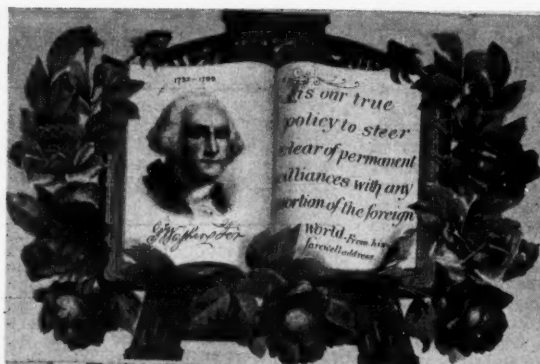 1732-1799
G Washington
is our true
policy to steer
clear of permanent
alliances with any
portion of the foreign
World. From his
farewell address